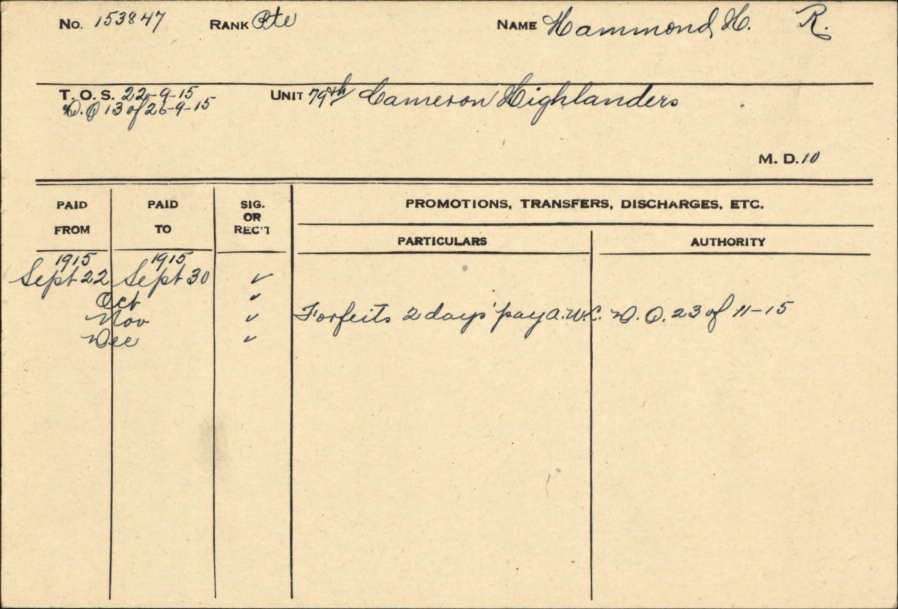 No. 153847 RANK Pte NAME Hammond, H. R.
T. O. S. 22-9-15 UNIT 79th Cameron Highlanders
D.O 13 of 26-9-15
M. D. 10
PAID FROM PAID TO SIG. OR REC'T PROMOTIONS, TRANSFERS, DISCHARGES, ETC.
PARTICULARS AUTHORITY
1915 1915
Sept 22 Sept 30 ✓
Oct ✓
Nov ✓ Forfeits 2 days' pay A.W.L. D.O. 23 of 11-15
Dec ✓